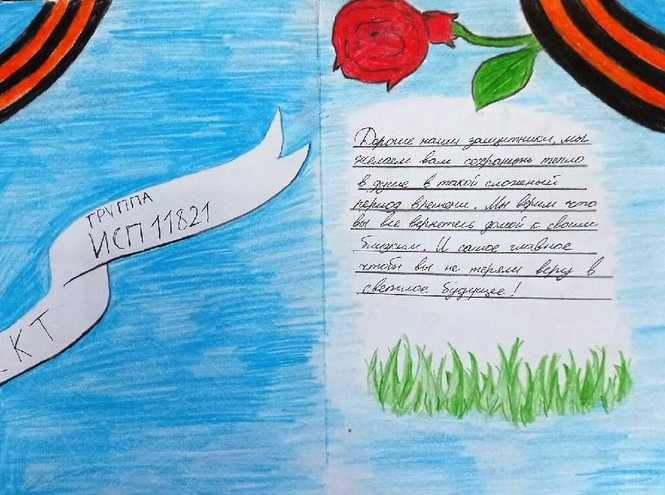 ГРУППА
ИСП 11821
КТ
Дорогие наши защитники, мы
желаем вам сохранить тепло
в душе в такой сложный
период времени. Мы верим что
вы все вернетесь домой к своим
близким. И самое главное
чтобы вы не теряли веру в
светлое будущее!